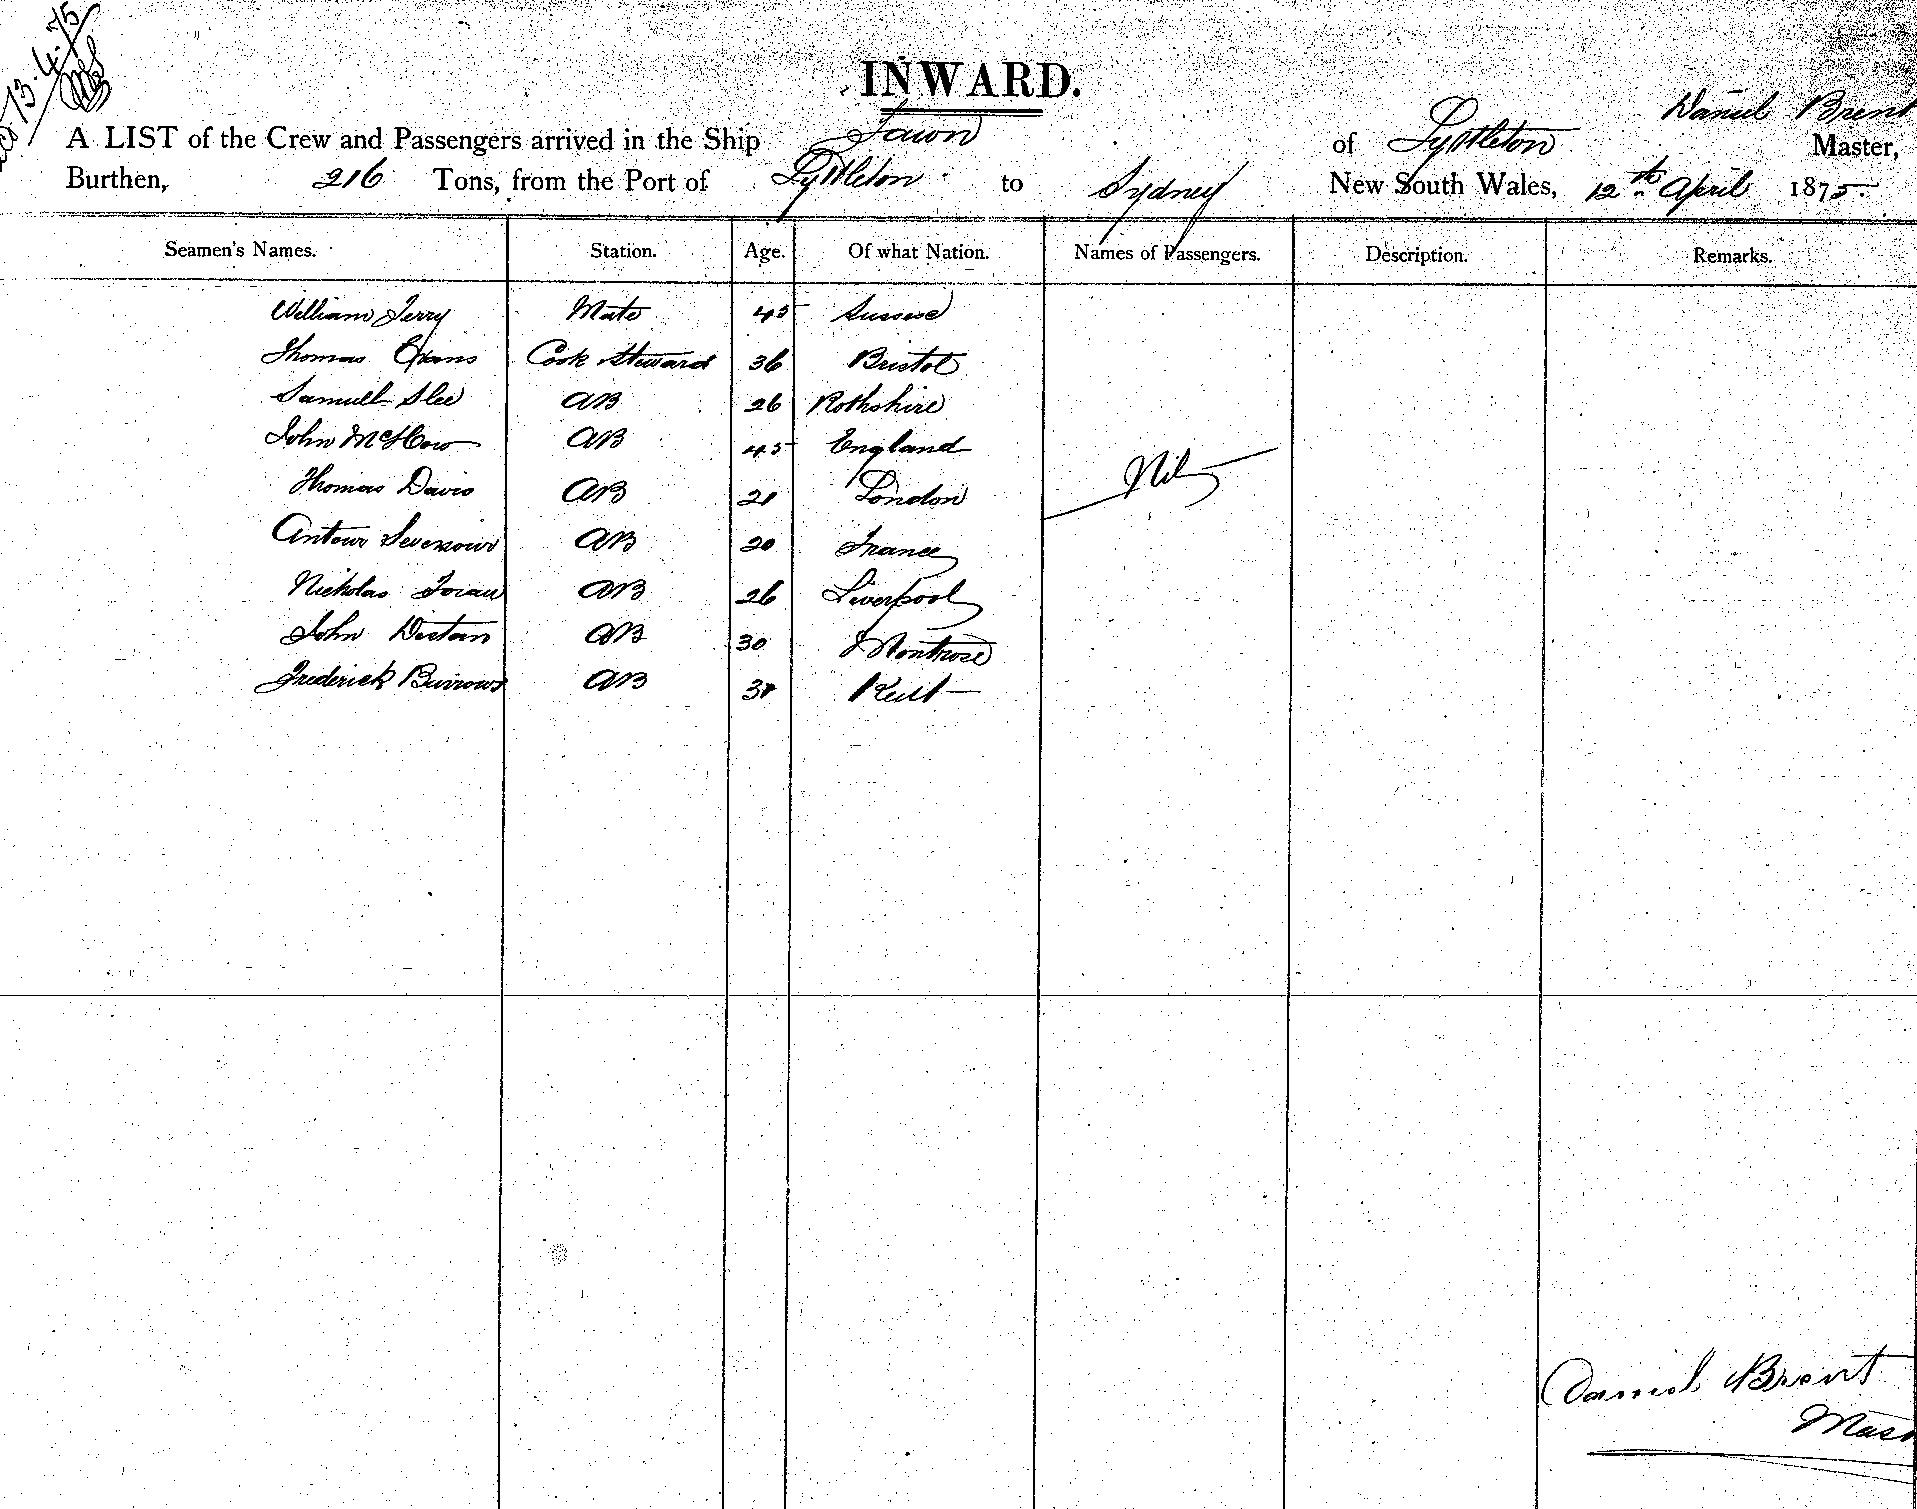 13.4.75
INWARD.
A LIST of the Crew and Passengers arrived in the Ship Fawn of Lyttleton Daniel Brent Master,
Burthen, 216 Tons, from the Port of Lyttleton to Sydney New South Wales, 12th April 1875
Seamen's Names. Station. Age. Of what Nation. Names of Passengers. Description. Remarks.
William Terry Mate 45 Sussex
Thomas Evans Cook Steward 36 Bristol
Samuell Slee AB 26 Rothshire
John AB 45 England
Thomas Davis AB 21 London
Nil
AB 20 France
Nickolas AB 26 Liverpool
John AB 30 Montrose
Frederick Burrows AB Kent
Daniel Brent
Mast